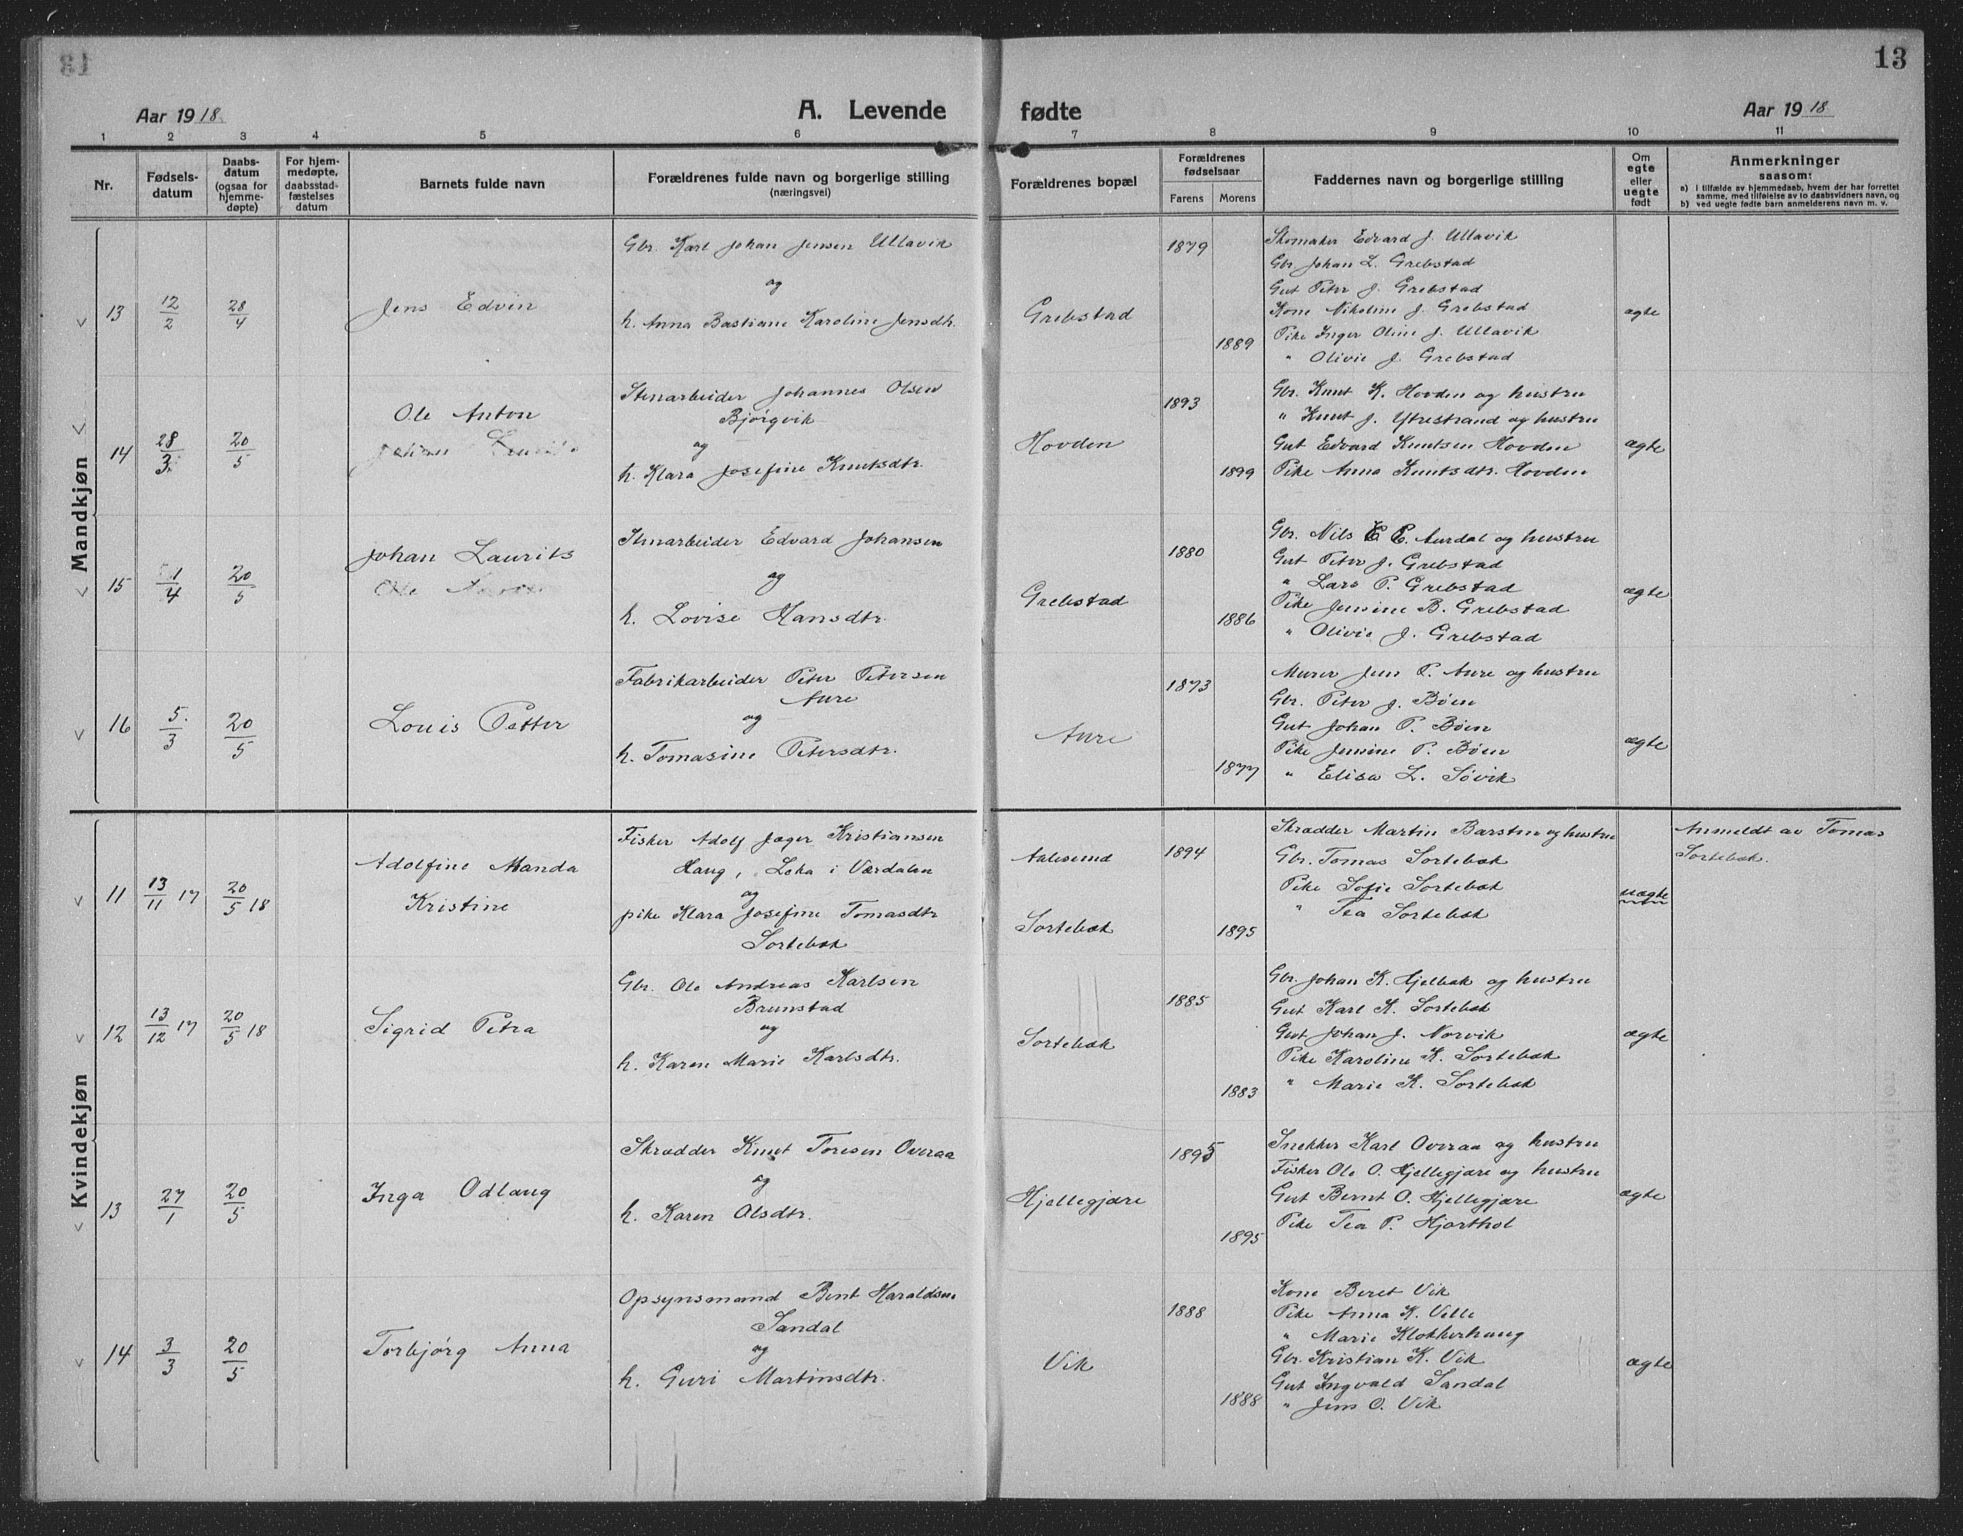 13
Aar 1918.
A. Levende fødte
Aar 1918
1 2 3 4 5 6 7 8 9 10 11
Nr.
Fødsels-
datum
Daabs-
datum
(ogsaa for
hjemme-
døpte)
For hjem-
medøpte,
daabsstad-
fæstelses
datum
Barnets fulde navn
Forældrenes fulde navn og borgerlige stilling
(næringsvei)
Forældrenes bopæl
Forældrenes
fødselsaar
Farens Morens
Faddernes navn og borgerlige stilling
Om
egte
eller
uegte
født
Anmerkninger
saasom:
a) i tilfælde av hjemmedaab, hvem der har forrettet
samme, med tilføielse av to daabsvidners navn, og
b) ved uegte fødte barn anmelderens navn m. v.
Mandkjøn
v 13 12/2 28/4
Jens Edvin
Gbr. Karl Johan Jensen Ullavik
og
h. Anna Bastiane Karoline Jensdtr.
Grebstad
1879
1889
Skomaker Edvard J. Ullavik
Gbr Johan L. Grebstad
Gut Peter J. Grebstad
Kone Nikoline J. Grebstad
Pike Inger Oline J. Ullavik
" Olivie J. Grebstad
egte
v 14 28/3 20/5
Ole Anton
Johan Laurits
Stenarbeider Johannes Olsen
Bjørgvik
og
h. Klara Josefine Knutsdtr.
Hovden
1893
1899
Gbr. Knut K. Hovden og hustru
" Knut J. Ytrestrand og hustru
Gut Edvard Knutsen Hovden
Pike Anna Knutsdtr. Hovden
egte
v 15 1/4 20/5
Johan Laurits
Ole Anton
Stenarbeider Edvard Johansen
og
h. Lovise Hansdtr.
Grebstad
1880
1886
Gbr. Nils E. E. Aurdal og hustru
Gut Peter J. Grebstad
" Lars P. Grebstad
Pike Jensine B. Grebstad
" Olivie J. Grebstad
egte
v 16 5/3 20/5
Louis Petter
Fabrikarbeider Peter Petersen
Aure
og
h. Tomasine Petersdtr.
Aure
1873
1877
Murer Jens P. Aure og hustru
Gbr. Peter J. Bøen
Gut Johan P. Bøen
Pike Jensine P. Bøen
" Elisa L. Søvik
egte
Kvindekjøn
v 11 13/11 17 20/5 18
Adolfine Manda
Kristine
Fisker Adolf Jæger Kristiansen
Haug, Leka i Værdalen
og
pike Klara Josefine Tomasdtr
Sortebæk
Aalesund
Sortebæk
1894
1895
Skrædder Martin Barsten og hustru
Gbr. Tomas Sortebæk
Pike Sofie Sortebæk
" Tea Sortebæk
uegte
Anmeldt av Tomas
Sortebæk.
v 12 13/12 17 20/5 18
Sigrid Petra
Gbr. Ole Andreas Karlsen
Brunstad
og
h. Karen Marie Karlsdtr.
Sortebæk
1885
1883
Gbr. Johan K. Hjelbak og hustru
Gut Karl K. Sortebæk
Gut Johan J. Norvik
Pike Karoline K. Sortebæk
" Marie K. Sortebæk
egte
v 13 27/1 20/5
Inga Odlaug
Skrædder Knut Toresen Overaa
og
h. Karen Olsdtr.
Hjellegjære
1895
1895
Snekker Karl Overaa og hustru
Fisker Ole O. Hjellegjære og hustru
Gut Bernt O. Hjellegjære
Pike Tea P. Hjorthol
egte
v 14 3/3 20/5
Torbjørg Anna
Opsynsmand Bent Haraldsen
Sandal
og
h. Guri Martinsdtr.
Vik
1888
1888
Kone Beret Vik
Pike Anna K. Velle
" Marie Klokkerhaug
Gbr. Kristian K. Vik
Gut Ingvald Sandal
" Jens O. Vik
egte